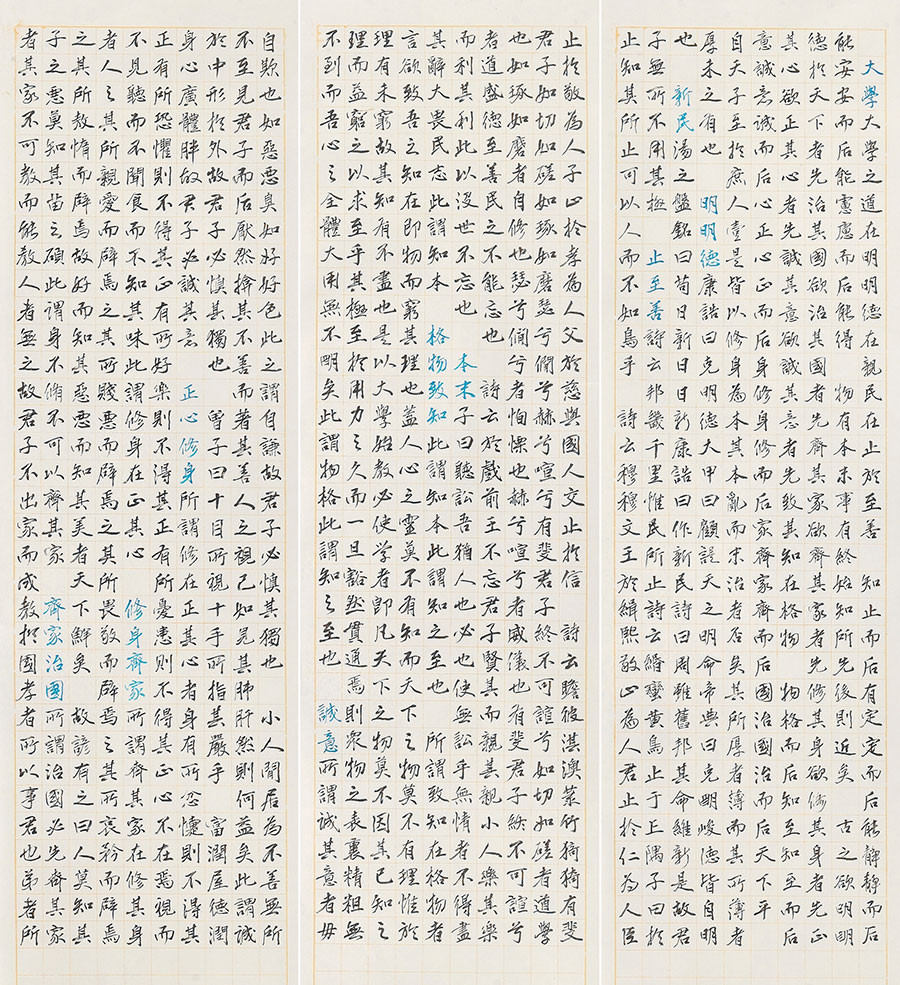 大學大學之道在明明德在親民在止於至善 知止而后有定定而后能靜靜而后
能安安而后能慮慮而后能得 物有本末事有終始知所先後則近矣 古之欲明明
德於天下者先治其國欲治其國者先齊其家欲齊其家者先修其身欲修其身者先正
其心欲正其心者先誠其意欲誠其意者先致其知在格物 物格而后知至知至而后
意誠意誠而后心正心正而后身修身修而后家齊家齊而后國治國治而后天下平
自天子至於庶人壹是皆以修身為本其本亂而末治者否矣其所厚者薄而其所薄者
厚未之有也 明明德康誥曰克明德大甲曰顧諟天之明命帝典曰克明峻德皆自明
也 新民湯之盤銘曰苟日新日日新康誥曰作新民詩曰周雖舊邦其命維新是故君
子無所不用其極 止至善詩云邦畿千里惟民所止詩云緡蠻黃鳥止于丘隅子曰於
止知其所止可以人而不如鳥乎 詩云穆穆文王於緝熙敬止為人君止於仁為人臣
止於敬為人子止於孝為人父於慈與國人交止於信 詩云瞻彼淇澳菉竹猗猗有斐
君子如切如磋如琢如磨瑟兮僩兮赫兮喧兮有斐君子終不可諠兮如切如磋者道學
也如琢如磨者自修也瑟兮僩兮者恂慄也赫兮喧兮者威儀也有斐君子終不可諠兮
者道盛德至善民之不能忘也 詩云於戲前王不忘君子賢其而親其親小人樂其樂
而利其利此以沒世不忘也 本末子曰聽訟吾猶人也必也使無訟乎無情者不得盡
其辭大畏民志此謂知本 格物致知此謂知本此謂知之至也 所謂致知在格物者
言欲致吾之知在即物而窮其理也蓋人心之靈莫不有知而天下之物莫不有理惟於
理有未窮故其知有不盡也是以大學始教必使學者即凡天下之物莫不因其已知之
理而益窮之以求至乎其極至於用力之久而一旦豁然貫通焉則眾物之表裏精粗無
不到而吾心之全體大用無不明矣此謂物格此謂知之至也 誠意所謂誠其意者毋
自欺也如惡惡臭如好好色此之謂自謙故君子必慎其獨也 小人閒居為不善無所
不至見君子而后厭然揜其不善而著其善人之視己如見其肺肝然則何益矣此謂誠
於中形於外故君子必慎其獨也 曾子曰十目所視十手所指其嚴乎 富潤屋德潤
身心廣體胖故君子必誠其意 正心修身所謂修在正其心者身有忿懥則不得其
正有所恐懼則不得其有所好樂則不得其正有所憂患則不得其正心不在焉視而
不見聽而不聞食而不知其味此謂修身在正其心 修身齊家所謂齊其家在修其身
者人之其所親愛而辟焉之其所賤惡而辟焉之其所畏敬而辟焉之其所哀矜而辟焉
之其所敖惰而辟焉故好而知其惡惡而知其美者天下鮮矣 故諺有之曰人莫知其
子之惡莫知其苗之碩此謂身不脩不可以齊其家 齊家治國所謂治國必先齊其家
者其家不可教而能教人者無之故君子不出家而成教於國孝者所以事君也弟者所